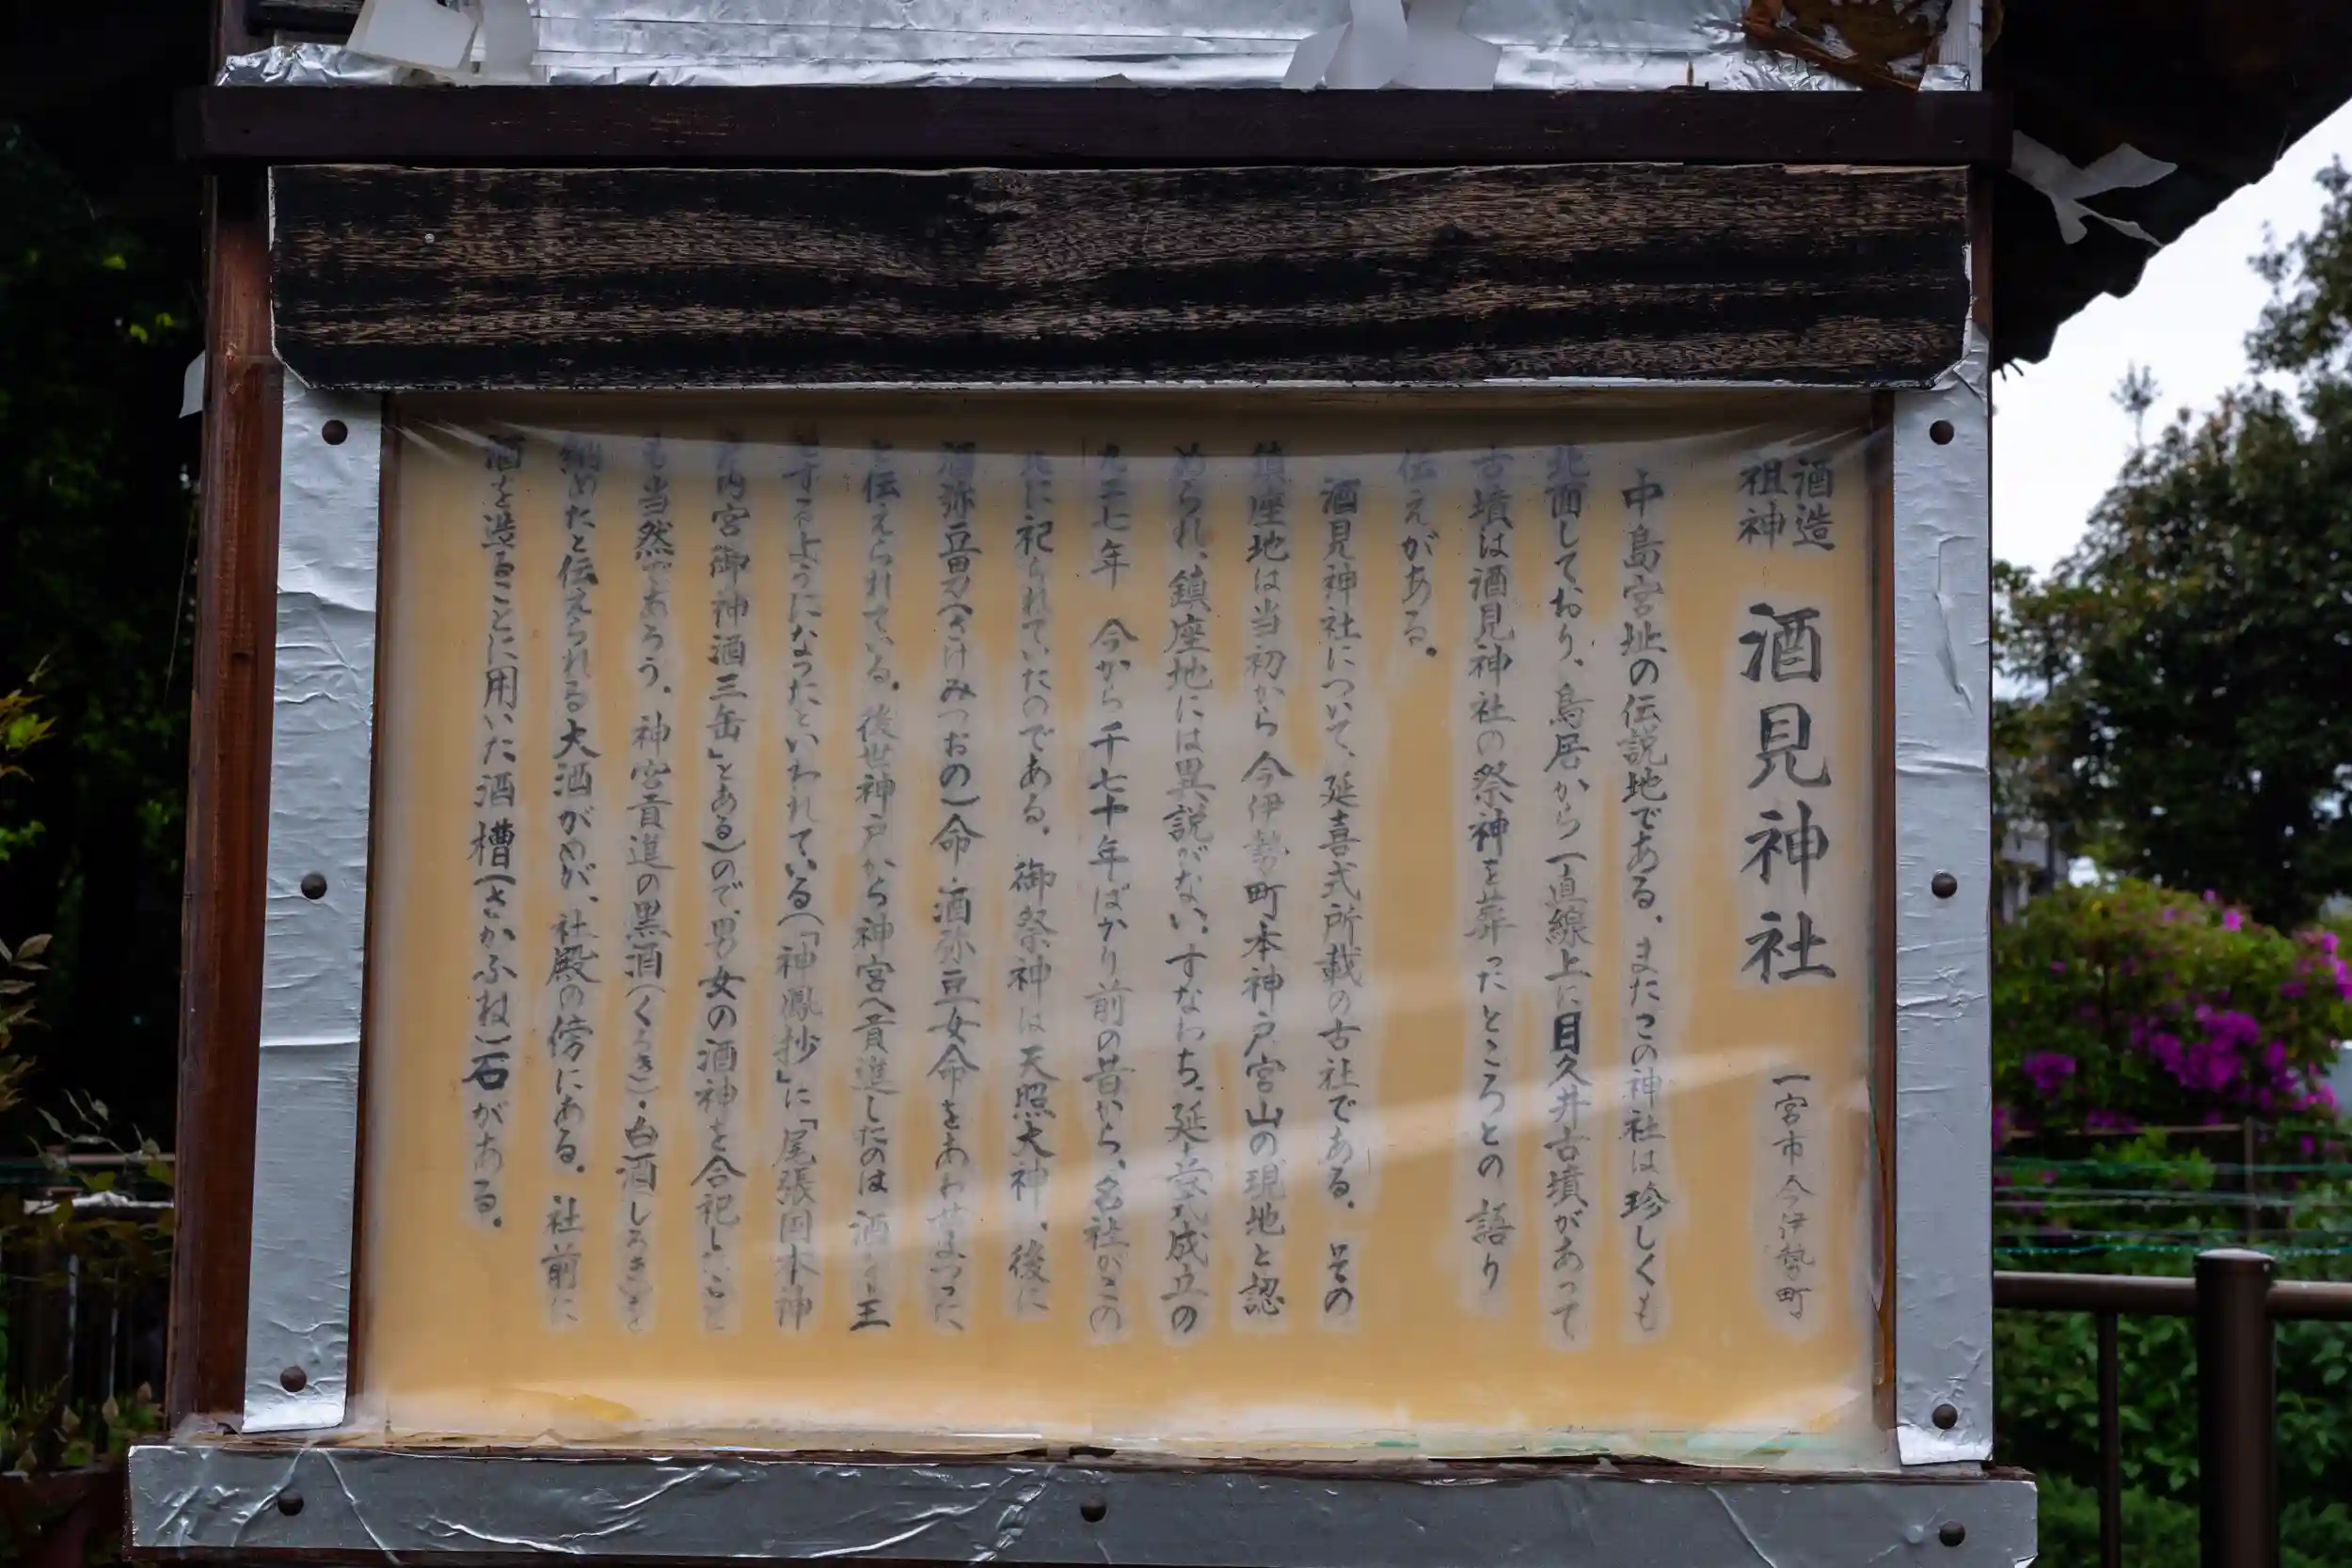 酒造
祖神
酒見神社
一宮市今伊勢町
中島宮址の伝説地である。またこの神社は珍しくも
北面しており、鳥居から一直線上に目久井古墳があって
古墳は酒見神社の祭神を葬ったところとの語り
伝えがある。
酒見神社について、延喜式所載の古社である。その
鎮座地は当初から今伊勢町本神戸宮山の現地と認
められ、鎮座地には異説がない。すなわち、延喜式成立の
九二七年 今から千七十年ばかり前の昔から、名社がこの
地に祀られていたのである。御祭神は天照大神、後に
酒弥豆男(さけみつおの)命・酒弥豆女命をあわせまつった
と伝えられている。後世神戸から神宮へ貢進したのは酒を主
とするようになったといわれている(「神鳳抄」に「尾張国本神
戸内宮御神酒三缶」とある)ので、男女の酒神を合祀したこと
も当然であろう。神宮貢進の黒酒(くろき)・白酒(しろき)を
納めたと伝えられる大酒がめが、社殿の傍にある。社前に
酒を造ることに用いた酒槽(さかふね)石がある。